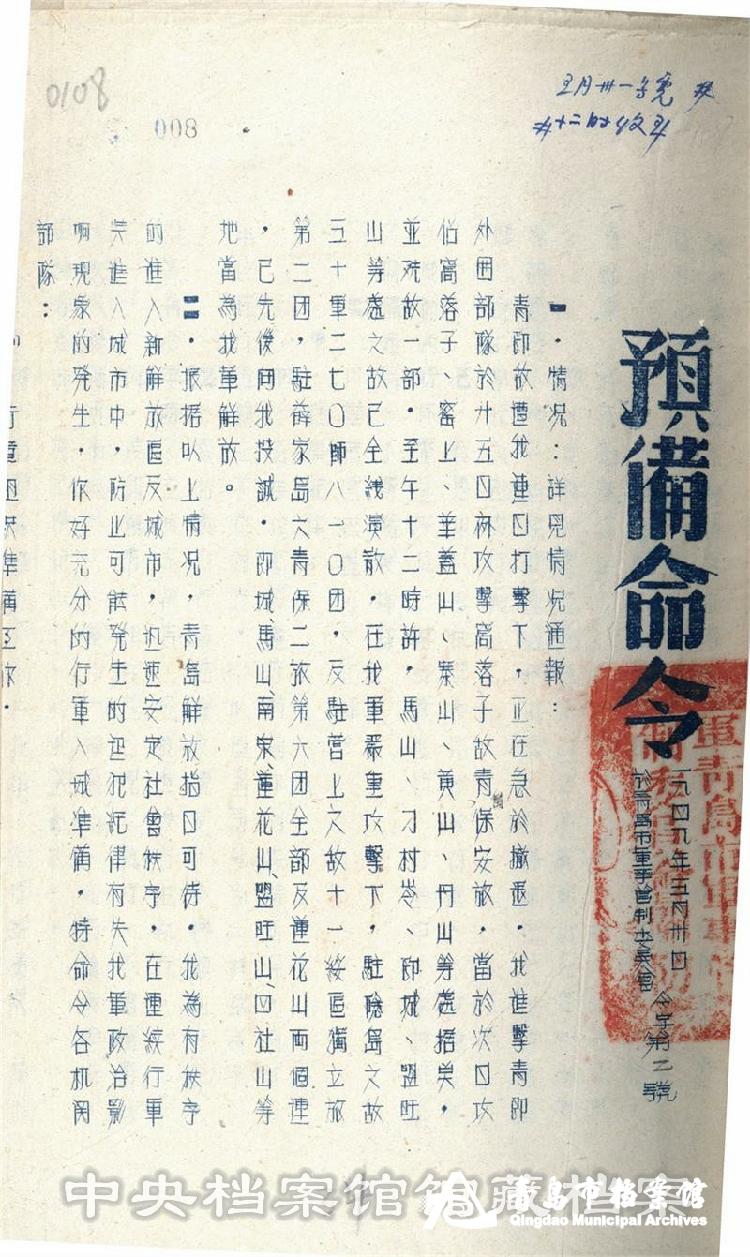 0108
008
五月卅一号
預備命令
一九四九年五月卅日
於青島市軍事管制委員會
令字第二號
一．情况：詳見情况通報：
青即敌遭我連日打擊下，正在急於撤退，我進擊青即
外囲部隊於廿五日麻攻擊窩落子敌青保安旅，當於次日攻
佔窩落子、窑上、華蓋山、棗山、黄山、丹山等處据奌，
並殘敌一部．至午十二時許，馬山、刁村岺、即城、盟旺
山等處之敌已全綫潰散，在我軍嚴重攻擊下，駐陰島之敌
五十軍二七〇師八一〇团，反駐営上之敌十一綏區獨立旅
第二团，駐薛家島六青保二旅第六团全部反蓮花山両個連
，已先後向我投誠．即城、馬山、南泉、蓮花山、盟旺山、四社山等
地當為我軍解放。
二．根据以上情况，青島解放指日可待．我為有秩序
的進入新解放區反城市，迅速安定社會秩序，在連続行軍
英進入城市中，防止可能発生的違犯紀律有失我軍政治影
响現象的発生，作好充分的行軍入城準備，特命令各机関
部隊：
中央档案馆馆藏档案
青岛市档案馆
Qingdao Municipal Archives